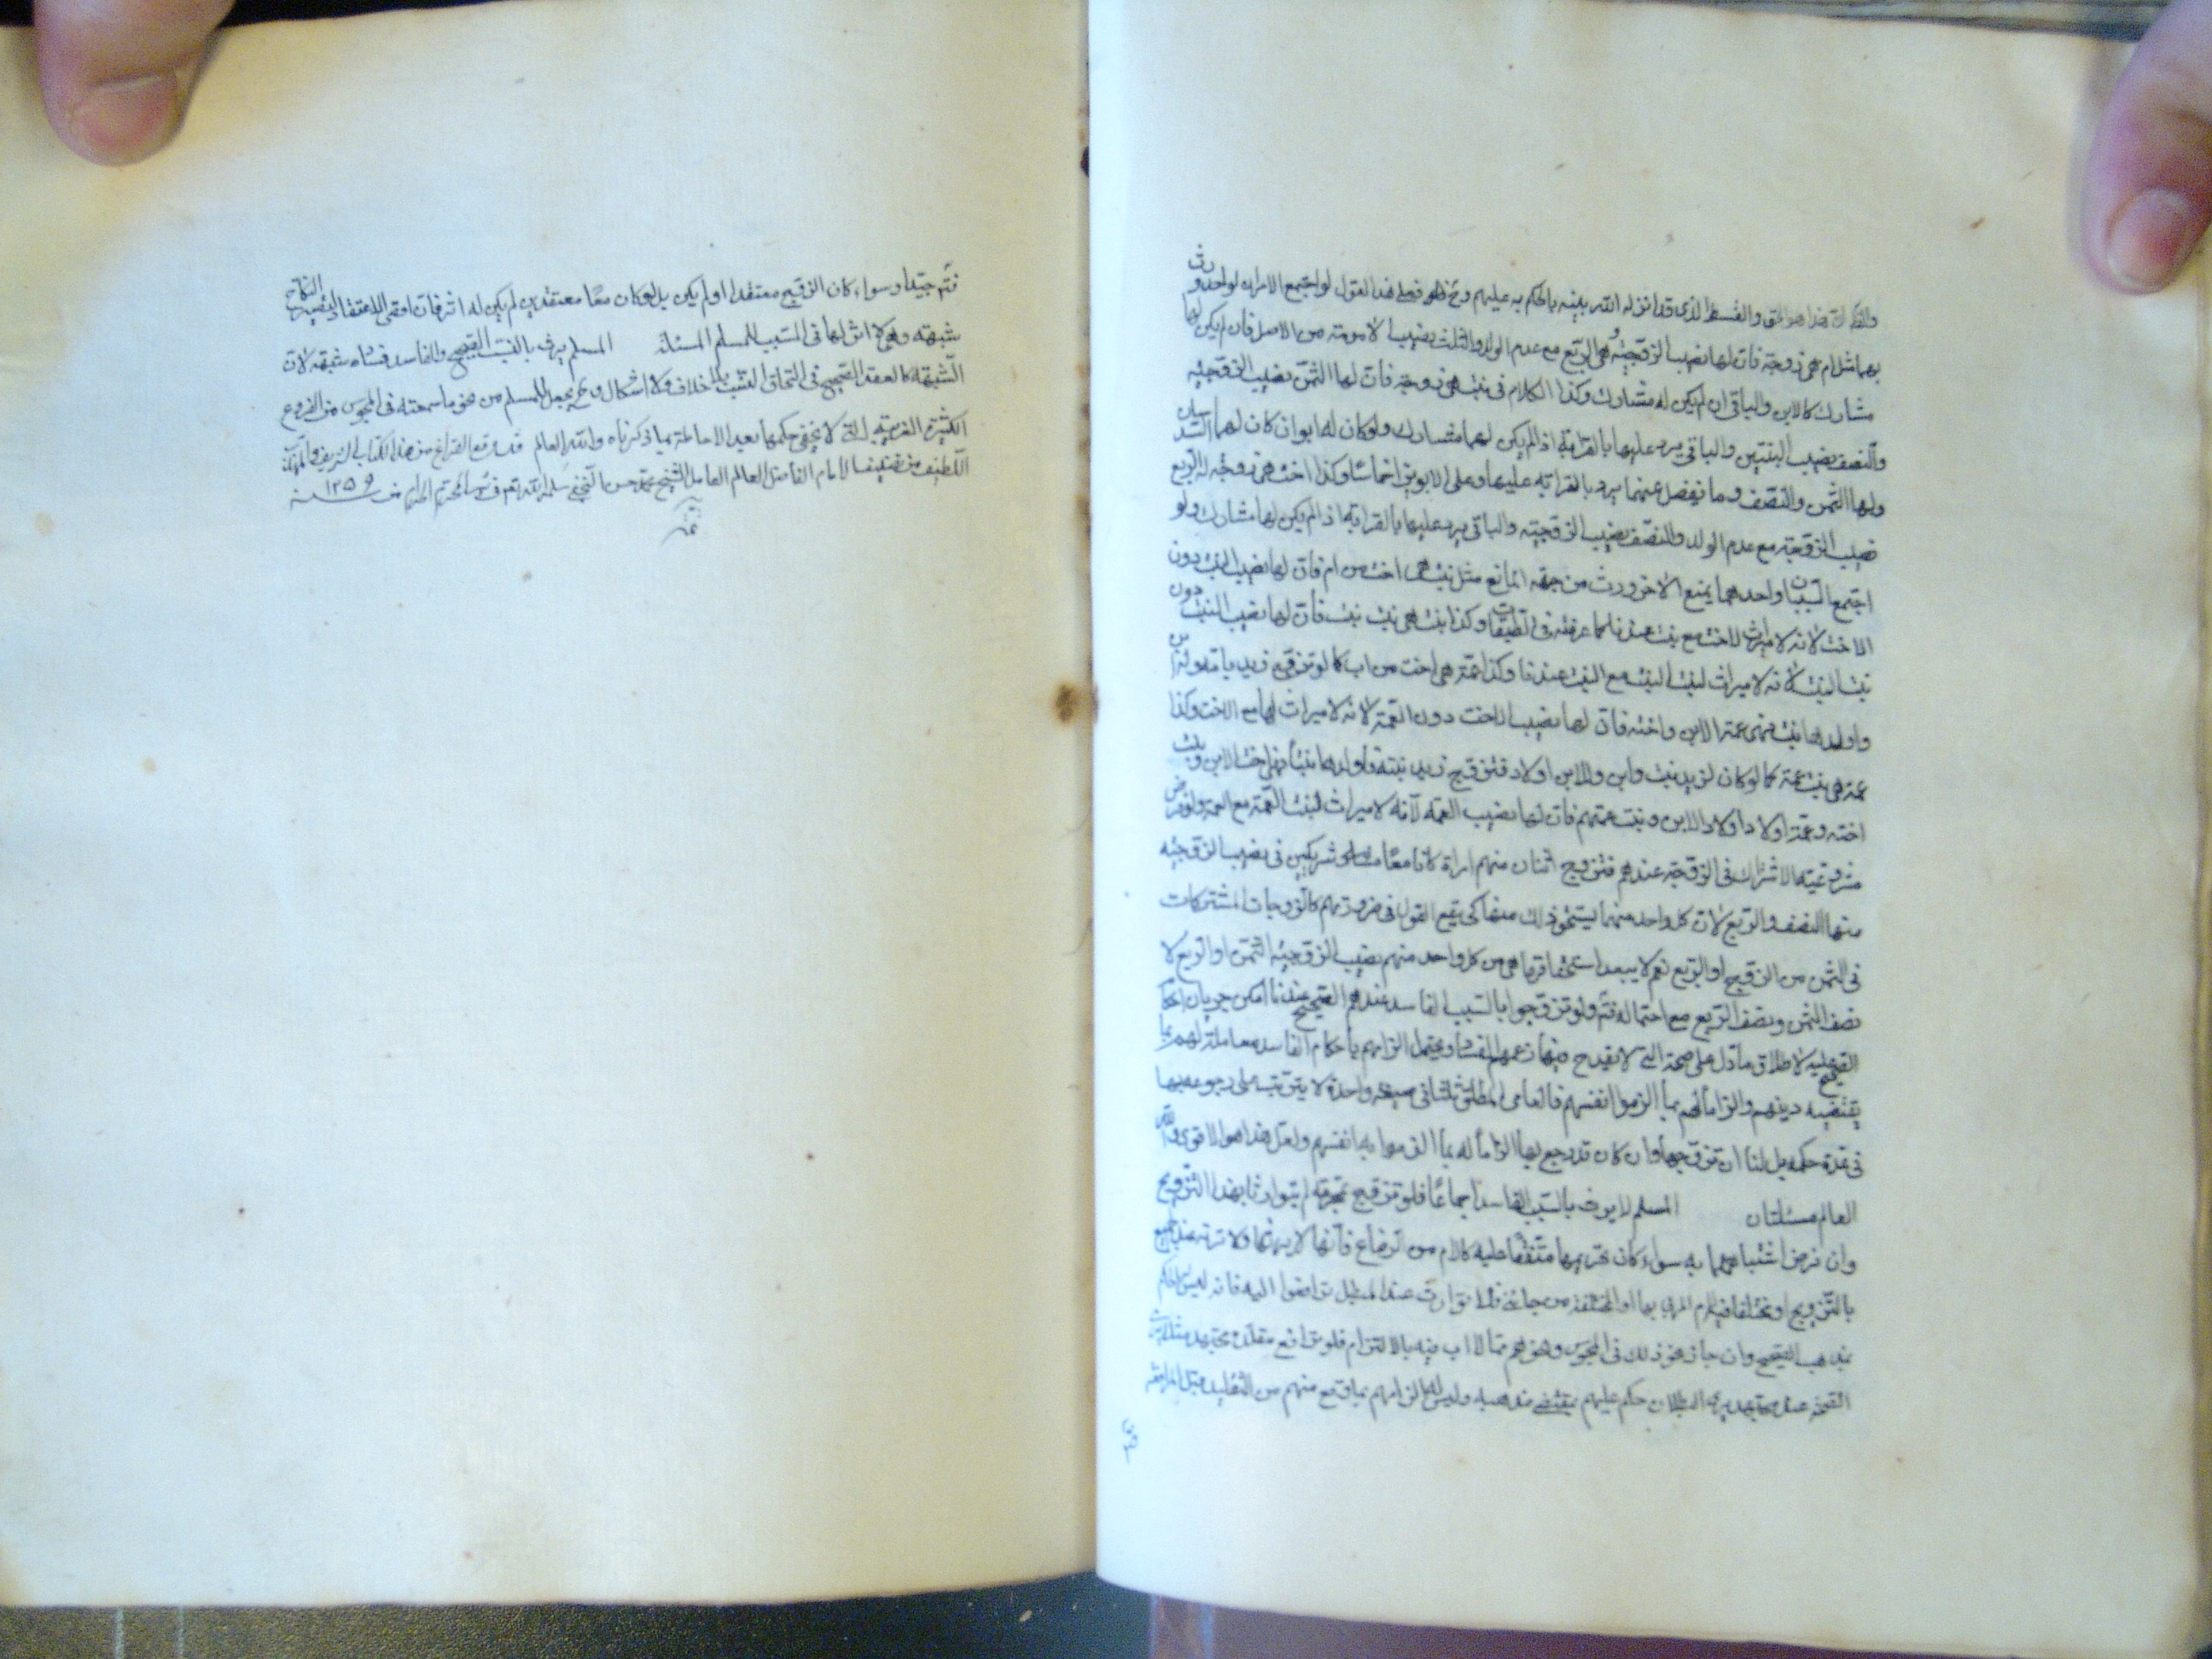 بهما مثل ام هي زوجة فان لها نصيب الزوجية وهي الربع مع عدم الولد والثلث نصيب الامومة من الاصل فان لم يكن لها
مشارك كالابن والباقي ان لم يكن له مشارك وكذا الكلام في بنت هي زوجة فان لها الثمن نصيب الزوجية
والنصف نصيب البنتية والباقي يرد عليها بالقرابة اذا لم يكن لها مشارك ولو كان له ابوان كان لهما السدسان
ولها الثمن والنصف وما يفضل عنهما يرد بالقرابة عليها وعلى الابوين اخماسا وكذا اخت هي زوجة له الربع
نصيب الزوجية مع عدم الولد والنصف نصيب الزوجية والباقي يرد عليها بالقرابة اذا لم يكن لها مشارك ولو
اجتمع السببان واحدهما يمنع الاخر ورث من جهة المانع مثل بنت هي اخت من ام فان لها نصيب البنت دون
الاخت لانه لا ميراث للاخت مع بنت عندنا كما عرفته في الطبقات وكذا بنت هي بنت بنت فان لها نصيب البنت دون
بنت البنت لانه لا ميراث لبنت البنت مع البنت عندنا وكذا عمة هي اخت من اب كما لو تزوج زيد بام
واولدها بنتا فهي عمة الابن واخته فان لها نصيب الاخت دون العمة لانه لا ميراث لها مع الاخت وكذا
عمة هي بنت عمة كما لو كان لزيد بنت وابن وللابن اولاد فتزوج زيد بنته فاولدها بنتا فهي اخت الابن وبنت
اخته وعمة اولاد الابن وبنت عمتهم فان لها نصيب العمة لانه لا ميراث لبنت العمة مع العمة ولو فرض
مشروعية الاشتراك في الزوجة عندهم فتزوج اثنان منهم امراة كانا معا شريكين في نصيب الزوجية
منها النصف والربع لان كل واحد منهما يستحق ذلك كالزوجات المشتركات
في الثمن من الزوج او الربع نعم لا يبعد استحقاقها هي من كل واحد منهم نصيب الزوجية الثمن او الربع لا
نصف الثمن ونصف الربع مع احتماله فتم ولو تزوجوا بالسبب الفاسد عندهم الصحيح عندنا امكن جريان احكام
الصحيح عليه لاطلاق ما دل على صحته التي لا يقدح فيها زعمهم الفساد ويحتمل الزامهم باحكام الفاسد معاملة لهم بما
يقتضيه دينهم والزاما لهم بما الزموا انفسهم فالعامي المطلق ثلثا في صيغة واحدة لا يترتب على رجوعه بها
في عدة حكمه بل لنا ان نتزوجها وان كان قد رجع بها الزاما له بما الزموا به انفسهم ولعل هذا هو الاقوى والله
العالم مسئلتان المسلم لا يرث بالسبب الفاسد اجماعا فلو تزوج محرمة لم يتوارثا بهذا التزويج
وان فرض اشتباههما به سواء كان تحريمها متفقا عليه كالام من الرضاع فانها لا يرثها ولا ترثه عند الجميع
بالتزويج او مختلفا فيه كام المزني بها او المختلقة من مائه فلا توارث عند المبطل ترافعوا اليه فانه ليس الحكم
بمذهب الصحيح وان جاز نحو ذلك في المجوس ونحوهم فلو ترافع مقلدة مجتهد مثلا يرى
الصحة عند مجتهد يرى البطلان حكم عليهم بمقتضى مذهبه وليس له الزامهم بما وقع منهم من التقليد قبل المرافعة
فتم جيدا وسواء كان الزوج معتقدا او لم يكن بل لو كان معا معتقدين لم يكن له اثر
شبهة وهي لا اثر لها في السبب للمسلم المسئلة المسلم يرث بالنسب الصحيح والفاسد منشأه شبهة لان
الشبهة كالعقد الصحيح في التحاق النسب بلا خلاف ولا اشكال وح يحصل للمسلم من نحو ما سمعته في المجوس من الفروع
الكثيرة الغريبة التي لا يخفى حكمها بعد الاحاطة بما ذكرناه والله العالم قد وقع الفراغ من هذا الكتاب الشريف
اللطيف من تصنيف الامام الفاضل العالم العامل الشيخ محمد حسن النجفي سلمه الله تعم في شهر المحرم الحرام من سنة ١٢٥٩